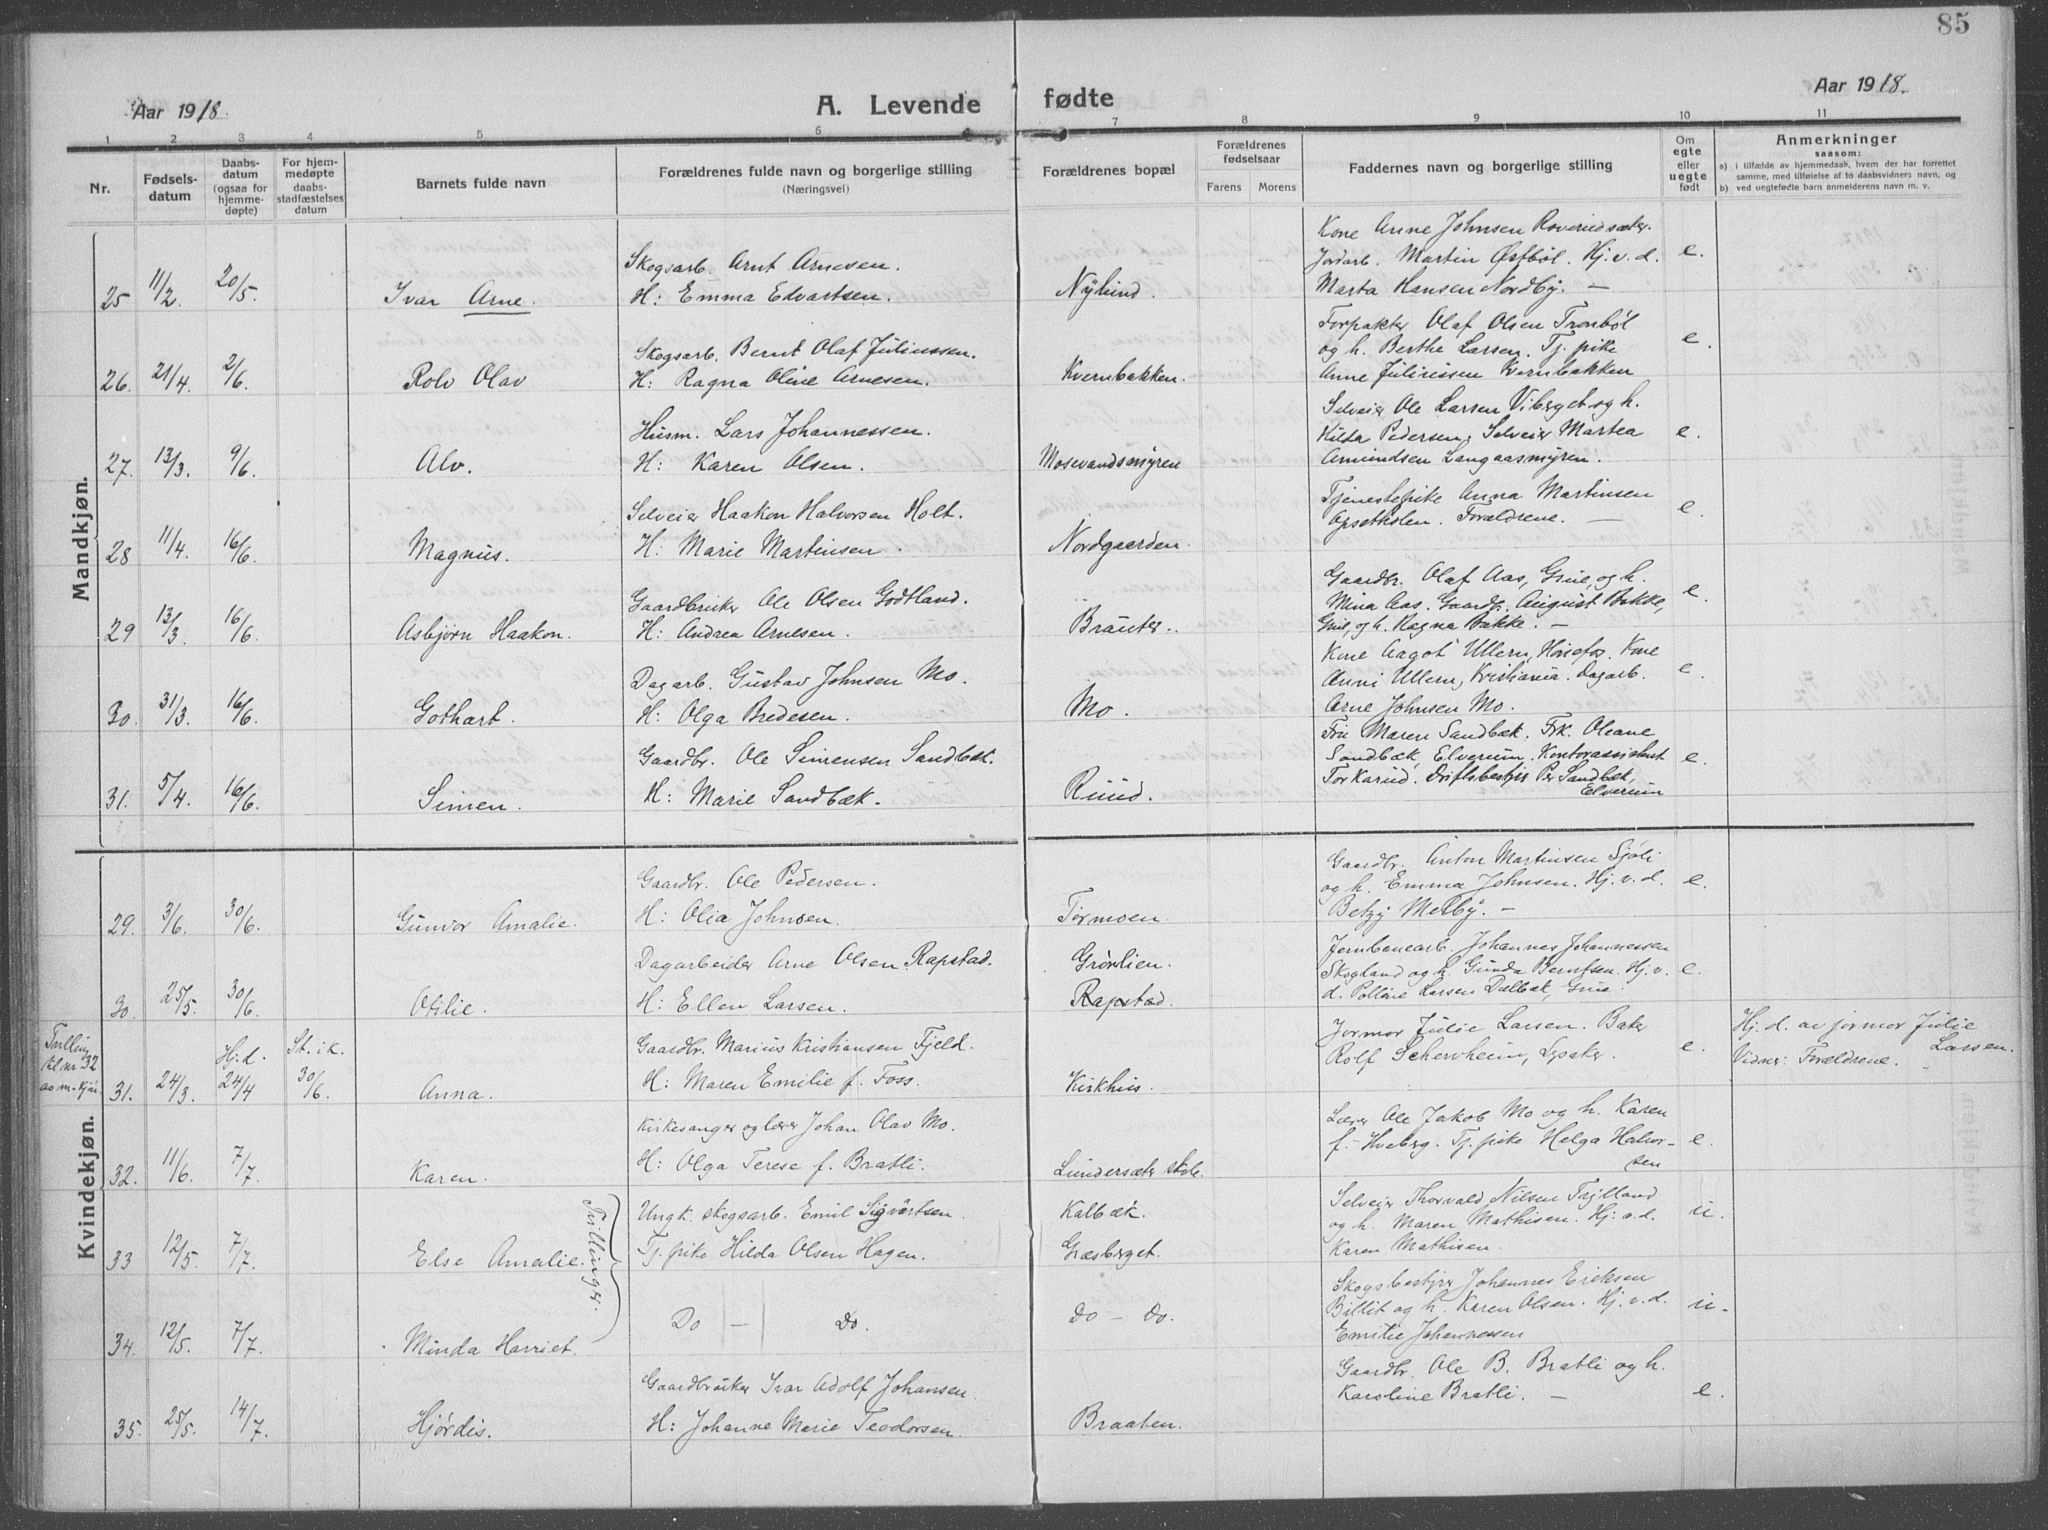 85
Aar 1918.
A. Levende fødte
Aar 1918.
1 2 3 4 5 6 7 8 9 10 11
Nr.
Fødsels-
datum
Daabs-
datum
(ogsaa for
hjemme-
døpte)
For hjem-
medøpte
daabs-
stadfæstelses
datum
Barnets fulde navn
Forældrenes fulde navn og borgerlige stilling
(Næringsvei)
Forældrenes bopæl
Forældrenes
fødselsaar
Farens Morens
Faddernes navn og borgerlige stilling
Om
egte
eller
uegte
født
Anmerkninger
saasom:
a) i tilfælde av hjemmedaab, hvem der har forrettet
samme, med tilføielse af to daabsvidners navn, og
b) ved uegtefødte barn anmelderens navn m. v.
Mandkjøn.
25 11/2. 20/5. Ivar Arne.
Skogsarb. Arnt Arnesen.
H: Emma Edvartsen.
Nylund.
Kone Anne Johnsen Roverudsæter.
Jordarb. Martin Østbøl. Hj. v. d.
Marta Hansen Nordby. —
e.
26. 21/4. 2/6. Rolv Olav
Skogsarb. Bernt Olaf Juliussen.
H: Ragna Oline Arnesen.
Kvernbakken.
Forpakter Olaf Olsen Tronbøl
og h. Berthe Larsen. Tj. pike
Anne Juliussen Kvernbakken
e.
27. 13/3. 9/6. Alv.
Husm. Lars Johannessen.
H: Karen Olsen.
Mosevandsmyren
Selveier Ole Larsen Viberget og h.
Hilda Pedersen, Selveier Martea
Amundsen Langaasmyren.
e.
28 11/4. 16/6. Magnus.
Selveier Haakon Halvorsen Holt.
H: Marie Martinsen.
Nordgaarden.
Tjenestepike Anna Martinsen
Opsetholen. Forældrene. —
e.
29 13/3. 16/6. Asbjørn Haakon.
Gaardbruker Ole Olsen Godtland.
H: Andrea Arnesen.
Brauter.
Gaardbr. Olaf Aas, Grue, og h.
Mina Aas. Gaardb. August Bakke,
Grue, og h. Ragna Bakke. —
e.
30. 31/3. 16/6. Gothart.
Dagarb. Gustav Johnsen Mo.
H: Olga Bredesen.
Mo.
Kone Aagot Ullern, Hønefos. Kone
Anni Ullern, Kristiania. Dagarb.
Arne Johnsen Mo.
e.
31. 5/4. 16/6. Simen.
Gaardbr. Ole Simensen Sandbæk.
H: Marie Sandbæk.
Ruud.
Fru Maren Sandbæk. Frk. Oleane
Sandbæk, Elverum. Kontorassistent
Tor Karud. Driftsbestyr Per Sandbæk,
Elverum
e.
Kvindekjøn.
29. 3/6. 30/6. Gunvor Amalie.
Gaardbr. Ole Pedersen.
H: Olia Johnsen.
Tormoen.
Gaardbr. Anton Martinsen Sjøli
og h. Emma Johnsen. Hj. v. d.
Betzy Melby. —
e.
30. 25/5. 30/6. Otilie.
Dagarbeider Arne Olsen Rapstad.
H: Ellen Larsen.
Grønlien.
Rapstad.
Jernbanearb. Johannes Johannessen
Skogland og h. Gunda Berntsen. Hj. v.
d. Polline Larsen Dalbak, Grue.
e.
Tvilling
til nr 32
31. 24/3. Hj. d. 24/4 St. i k. 30/6. Anna.
Gaardbr. Marius Kristiansen Fjeld.
H: Maren Emilie f. Foss.
Kirkhus.
Jormor Julie Larsen. Baker
Rolf Schervheim, Lysaker.
e.
Hj. d. av jormor Julie
Larsen.
Vidner: Forældrene.
32. 11/6. 7/7. Karen.
Kirkesanger og lærer Johan Olav Mo.
H: Olga Terese f. Bratli.
Lundersæter skole.
Lærer Ole Jakob Mo og h. Karen
f. Hveberg. Tj. pike Helga Halvor-
sen
e.
33 12/5. 7/7. Else Amalie.
Tvillinger.
Ungk. skogsarb. Emil Sigvartsen.
Tj. pike Hilda Olsen Hagen.
Kalbæk.
Græsberget.
Selveier Thorvald Nilsen Trylland
og h. Maren Mathisen. Hj. v. d.
Karen Mathisen.
u.
34. 12/5. 7/7. Minda Harriet.
Do — Do.
Do — Do.
Skogsbestyrer Johannes Eriksen
Billit og h. Karen Olsen. Hj. v. d.
Emilie Johannessen
u.
35. 25/5. 14/7. Hjørdis.
Gaardbruker Ivar Adolf Johansen.
H: Johanne Marie Teodorsen.
Braaten.
Gaardbr. Ole B. Bratli og h.
Karoline Bratli. —
e.